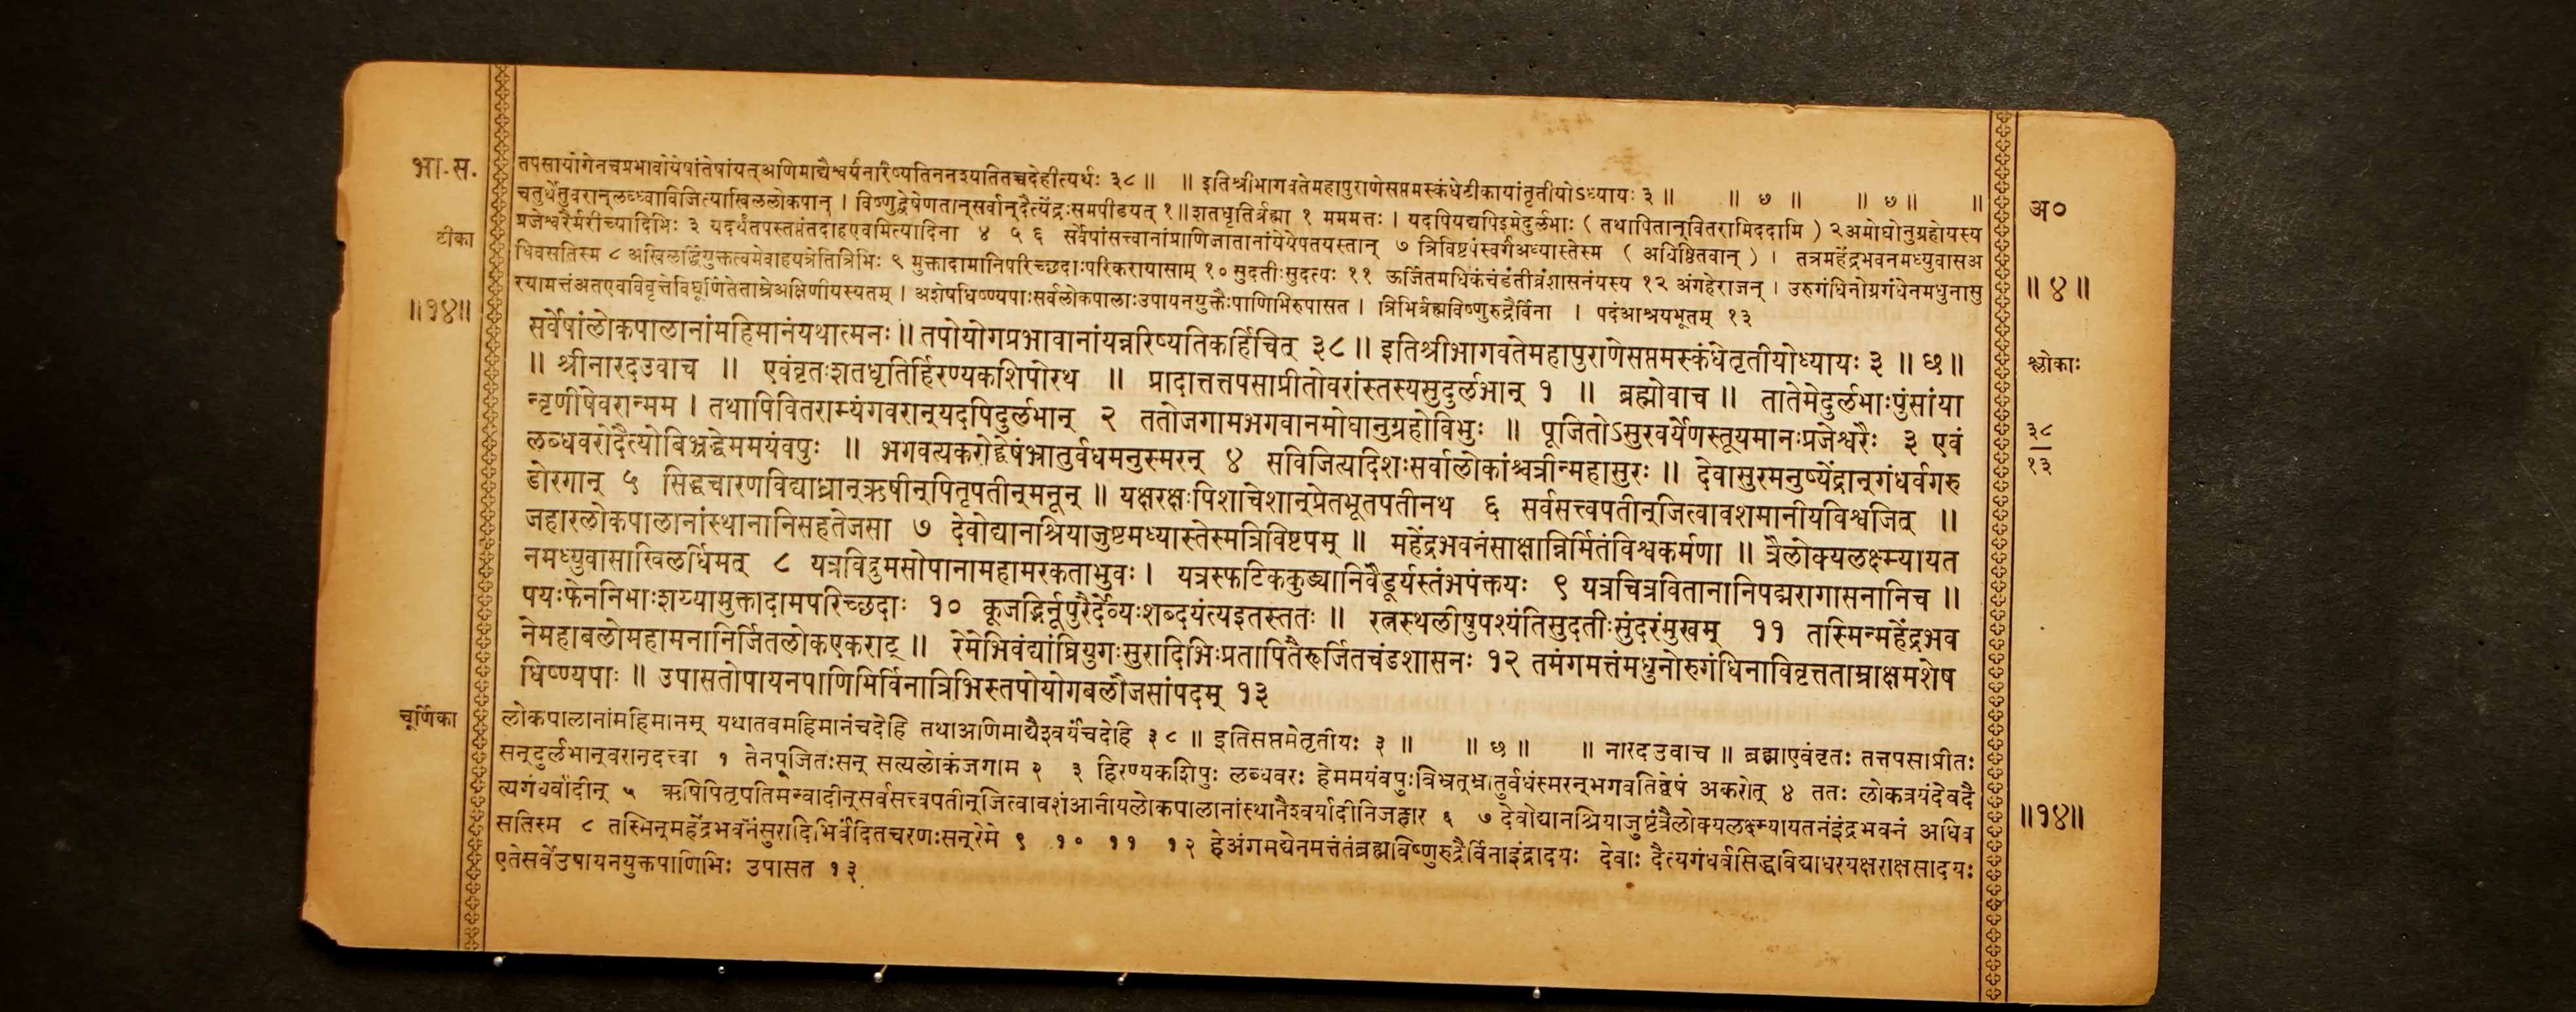 भा.स.
टीका
॥१४॥
तपसायोगेनचप्रभावोयेषांतेषांयत्अणिमाद्यैश्वर्यंनारिष्यतिननश्यतितच्चदेहीत्यर्थः ३८ ॥ ॥ इतिश्रीभागवतेमहापुराणेसप्तमस्कंधेटीकायांतृतीयोऽध्यायः ३ ॥ ॥ ७ ॥ ॥ ७ ॥ ॥
चतुर्थेतुवरान्लब्ध्वाविजित्याखिललोकपान् । विष्णुद्वेषेणतान्सर्वान्दैत्येंद्रःसमपीडयत् १ ॥ शतधृतिर्ब्रह्मा १ मममत्तः । यदपियद्यपिइमेदुर्लभाः ( तथापितान्वितरामिददामि ) २ अमोघोनुग्रहोयस्य
प्रजेश्वरैर्मरीच्यादिभिः ३ यदर्थंतपस्तप्तंतदाहएवमित्यादिना ४ ५ ६ सर्वेषांसत्त्वानांप्राणिजातानांयेयेपतयस्तान् ७ त्रिविष्टपंस्वर्गंअध्यास्तेस्म ( अधिष्ठितवान् ) । तत्रमहेंद्रभवनमध्युवासअ
धिवसतिस्म ८ अखिलर्द्धियुक्तत्वमेवाहयत्रेतित्रिभिः ९ मुक्तादामानिपरिच्छदाःपरिकरायासाम् १० सुदतीःसुदत्यः ११ ऊर्जितमधिकंचंडंतीव्रंशासनंयस्य १२ अंगहेराजन् । उरुगंधिनोग्रगंधेनमधुनासु
रयामत्तंअतएवविवृत्तेविघूर्णितेताम्रेअक्षिणीयस्यतम् । अशेषधिष्ण्यपाःसर्वलोकपालाःउपायनयुक्तैःपाणिभिरुपासत । त्रिभिर्ब्रह्मविष्णुरुद्रैर्विना । पदंआश्रयभूतम् १३
सर्वेषांलोकपालानांमहिमानंयथात्मनः ॥ तपोयोगप्रभावानांयन्नरिष्यतिकर्हिचित् ३८ ॥ इतिश्रीभागवतेमहापुराणेसप्तमस्कंधेतृतीयोध्यायः ३ ॥ छ ॥
॥ श्रीनारदउवाच ॥ एवंवृतःशतधृतिर्हिरण्यकशिपोरथ ॥ प्रादात्तत्तपसाप्रीतोवरांस्तस्यसुदुर्लभान् १ ॥ ब्रह्मोवाच ॥ तातेमेदुर्लभाःपुंसांया
न्वृणीषेवरान्मम । तथापिवितराम्यंगवरान्यदपिदुर्लभान् २ ततोजगामभगवानमोघानुग्रहोविभुः ॥ पूजितोऽसुरवर्येणस्तूयमानःप्रजेश्वरैः ३ एवं
लब्धवरोदैत्योबिभ्रद्धेममयंवपुः ॥ भगवत्यकरोद्द्वेषंभ्रातुर्वधमनुस्मरन् ४ सविजित्यदिशःसर्वालोकांश्चत्रीन्महासुरः ॥ देवासुरमनुष्येंद्रान्गंधर्वगरु
डोरगान् ५ सिद्धचारणविद्याध्रान्ऋषीन्पितृपतीन्मनून् ॥ यक्षरक्षःपिशाचेशान्प्रेतभूतपतीनथ ६ सर्वसत्त्वपतीन्जित्वावशमानीयविश्वजित् ॥
जहारलोकपालानांस्थानानिसहतेजसा ७ देवोद्यानश्रियाजुष्टमध्यास्तेस्मत्रिविष्टपम् ॥ महेंद्रभवनंसाक्षान्निर्मितंविश्वकर्मणा ॥ त्रैलोक्यलक्ष्म्यायत
नमध्युवासाखिलर्धिमत् ८ यत्रविद्रुमसोपानामहामरकताभुवः । यत्रस्फटिककुड्यानिवैडूर्यस्तंभपंक्तयः ९ यत्रचित्रवितानानिपद्मरागासनानिच ॥
पयःफेननिभाःशय्यामुक्तादामपरिच्छदाः १० कूजद्भिर्नूपुरैर्देव्यःशब्दयंत्यइतस्ततः ॥ रत्नस्थलीषुपश्यंतिसुदतीःसुंदरंमुखम् ११ तस्मिन्महेंद्रभव
नेमहाबलोमहामनानिर्जितलोकएकराट् ॥ रेमेभिवंद्यांघ्रियुगःसुरादिभिःप्रतापितैरूर्जितचंडशासनः १२ तमंगमत्तंमधुनोरुगंधिनाविवृत्तताम्राक्षमशेष
धिष्ण्यपाः ॥ उपासतोपायनपाणिभिर्विनात्रिभिस्तपोयोगबलौजसांपदम् १३
चूर्णिका
लोकपालानांमहिमानम् यथातवमहिमानंचदेहि तथाअणिमाद्यैश्वर्यंचदेहि ३८ ॥ इतिसप्तमेतृतीयः ३ ॥ ॥ छ ॥ ॥ नारदउवाच ॥ ब्रह्माएवंवृतः तत्तपसाप्रीतः
सन्दुर्लभान्वरान्दत्त्वा १ तेनपूजितःसन् सत्यलोकंजगाम २ ३ हिरण्यकशिपुः लब्धवरः हेममयंवपुःबिभ्रत्भ्रातुर्वधंस्मरन्भगवतिद्वेषं अकरोत् ४ ततः लोकत्रयंदेवदै
त्यगंधर्वादीन् ५ ऋषिपितृपतिमन्वादीन्सर्वसत्त्वपतीन्जित्वावशंआनीयलोकपालानांस्थानैश्वर्यादीनिजहार ६ ७ देवोद्यानश्रियाजुष्टंत्रैलोक्यलक्ष्म्यायतनंइंद्रभवनं अधिव
सतिस्म ८ तस्मिन्महेंद्रभवनेसुरादिभिर्वंदितचरणःसन्रेमे ९ १० ११ १२ हेअंगमद्येनमत्तंतंब्रह्मविष्णुरुद्रैर्विनाइंद्रादयः देवाः दैत्यगंधर्वसिद्धविद्याधरयक्षराक्षसादयः
एतेसर्वेउपायनयुक्तपाणिभिः उपासत १३
अ०
॥ ४ ॥
श्लोकाः
३८
१३
॥१४॥